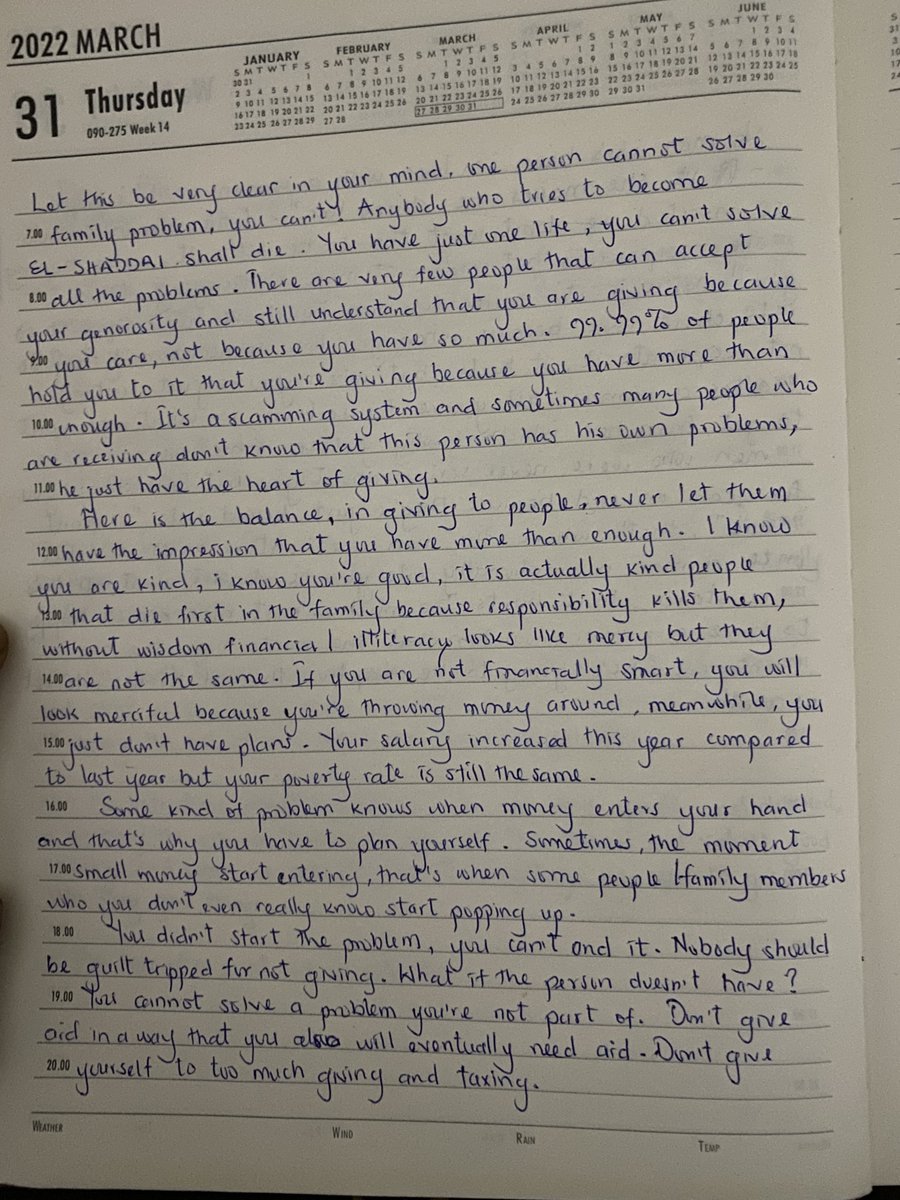 2022 MARCH
31 Thursday
090-275 Week 14
JANUARY
S M T W T F S
30 31 1
2 3 4 5 6 7 8
9 10 11 12 13 14 15
16 17 18 19 20 21 22
23 24 25 26 27 28 29
FEBRUARY
S M T W T F S
1 2 3 4 5
6 7 8 9 10 11 12
13 14 15 16 17 18 19
20 21 22 23 24 25 26
27 28
MARCH
S M T W T F S
1 2 3 4 5
6 7 8 9 10 11 12
13 14 15 16 17 18 19
20 21 22 23 24 25 26
27 28 29 30 31
APRIL
S M T W T F S
1 2
3 4 5 6 7 8 9
10 11 12 13 14 15 16
17 18 19 20 21 22 23
24 25 26 27 28 29 30
MAY
S M T W T F S
1 2 3 4 5 6 7
8 9 10 11 12 13 14
15 16 17 18 19 20 21
22 23 24 25 26 27 28
29 30 31
JUNE
S M T W T F S
1 2 3 4
5 6 7 8 9 10 11
12 13 14 15 16 17 18
19 20 21 22 23 24 25
26 27 28 29 30
Let this be very clear in your mind, one person cannot solve
7.00 family problem, you can't! Anybody who tries to become
EL-SHADDAI shall die. You have just one life, you can't solve
8.00 all the problems. There are very few people that can accept
your generosity and still understand that you are giving because
9.00 you care, not because you have so much. 99.99% of people
hold you to it that you're giving because you have more than
10.00 enough. It's a scamming system and sometimes many people who
are receiving don't know that this person has his own problems,
11.00 he just have the heart of giving.
Here is the balance, in giving to people, never let them
12.00 have the impression that you have more than enough. I know
you are kind, i know you're good, it is actually kind people
13.00 that die first in the family because responsibility kills them,
without wisdom financial illiteracy looks like mercy but they
14.00 are not the same. If you are not financially smart, you will
look merciful because you're throwing money around, meanwhile, you
15.00 just don't have plans. Your salary increased this year compared
to last year but your poverty rate is still the same.
16.00 Some kind of problem knows when money enters your hand
and that's why you have to plan yourself. Sometimes, the moment
17.00 small money start entering, that's when some people /family members
who you don't even really know start popping up.
18.00 You didn't start the problem, you can't end it. Nobody should
be guilt tripped for not giving. What if the person doesn't have?
19.00 You cannot solve a problem you're not part of. Don't give
aid in a way that you will eventually need aid. Don't give
20.00 yourself to too much giving and taxing.
WEATHER WIND RAIN TEMP